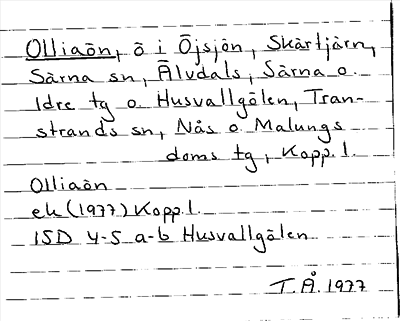 Olliaön, ö i Öjsjön, Skärtjärn,
Särna sn, Älvdals, Särna o.
Idre tg o. Husvallgölen, Tran-
strands sn, Nås o. Malungs
doms tg, Kopp. l.
Olliaön
ek (1977) Kopp. l.
15D 4-5 a-b Husvallgölen
T.Å. 1977